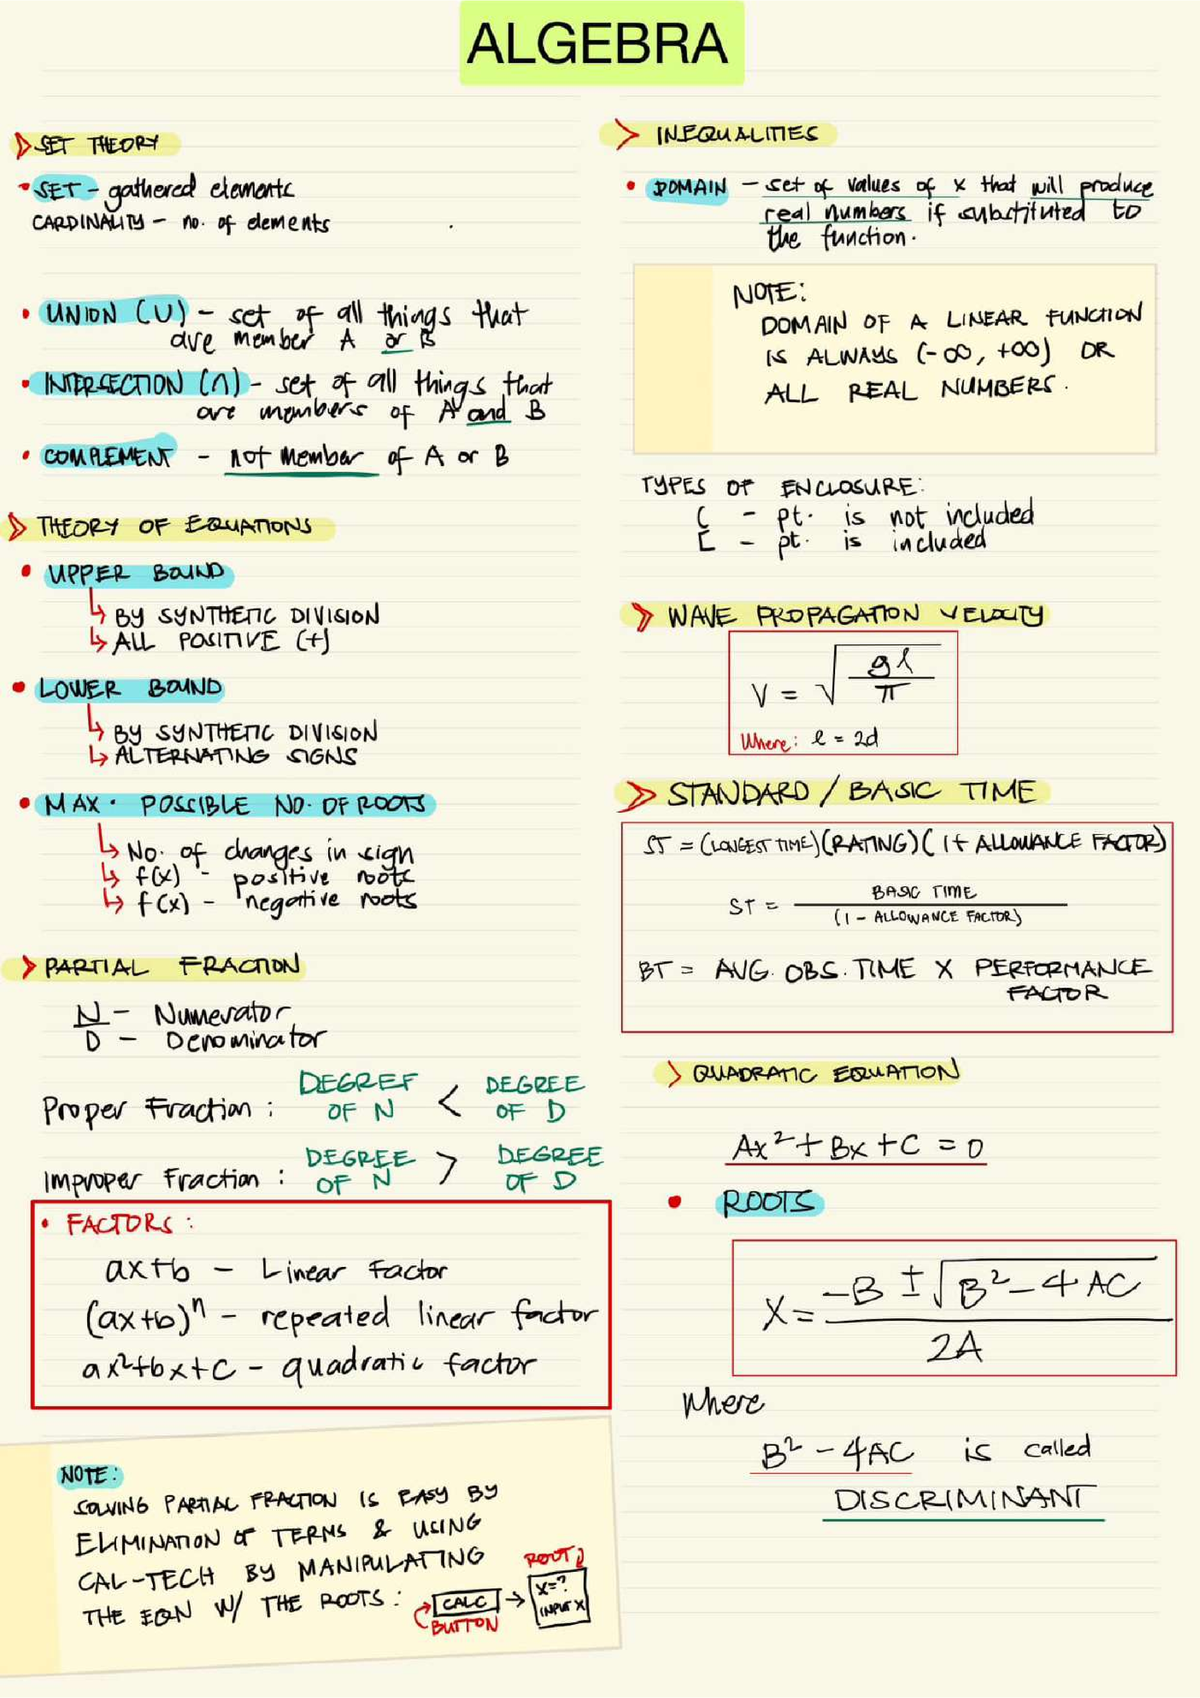 ALGEBRA
SET THEORY
SET - gathered elements
CARDINALITY - no. of elements
UNION (U) - set of all things that
are member A or B
INTERSECTION (∩) - set of all things that
are members of A and B
COMPLEMENT - not member of A or B
THEORY OF EQUATIONS
UPPER BOUND
↳ BY SYNTHETIC DIVISION
↳ ALL POSITIVE (+)
LOWER BOUND
↳ BY SYNTHETIC DIVISION
↳ ALTERNATING SIGNS
MAX. POSSIBLE NO. OF ROOTS
↳ No. of changes in sign
↳ f(x) - positive roots
↳ f(x) - negative roots
PARTIAL FRACTION
N - Numerator
D - Denominator
Proper Fraction : DEGREE OF N < DEGREE OF D
Improper Fraction : DEGREE OF N > DEGREE OF D
• FACTORS :
ax+b - Linear Factor
(ax+b)ⁿ - repeated linear factor
ax²+bx+c - quadratic factor
NOTE:
SOLVING PARTIAL FRACTION IS EASY BY
ELIMINATION OF TERMS & USING
CAL-TECH BY MANIPULATING
THE EQN W/ THE ROOTS :
CALC → X=?
INPUT X
BUTTON
ROOT
INEQUALITIES
• DOMAIN - set of values of x that will produce
real numbers if substituted to
the function.
NOTE:
DOMAIN OF A LINEAR FUNCTION
IS ALWAYS (-∞, +∞) OR
ALL REAL NUMBERS.
TYPES OF ENCLOSURE:
( - pt. is not included
[ - pt. is included
WAVE PROPAGATION VELOCITY
V = √(gl/π)
Where: l = 2d
STANDARD / BASIC TIME
ST = (LONGEST TIME)(RATING)(1+ ALLOWANCE FACTOR)
ST = BASIC TIME
(1 - ALLOWANCE FACTOR)
BT = AVG. OBS. TIME X PERFORMANCE
FACTOR
QUADRATIC EQUATION
Ax² + Bx + C = 0
• ROOTS
X = -B ± √B² - 4AC
2A
Where
B² - 4AC is called
DISCRIMINANT